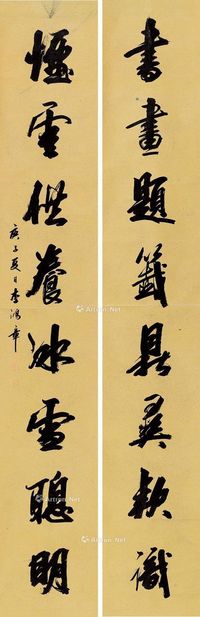 書畫題籤鼎彝款識
煙雲供養冰雪聰明
庚子夏日李鴻章
Artron.Net
Artron.Net
Artron.Net
Artron.Net